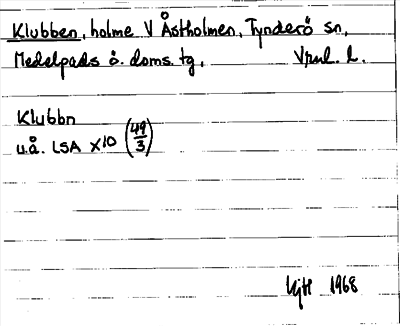 Klubben, holme V Åstholmen, Tynderö sn,
Medelpads ö. doms. tg, Vnrl. l.
Klubbn
u.å. LSA X10 (49/3)
1968